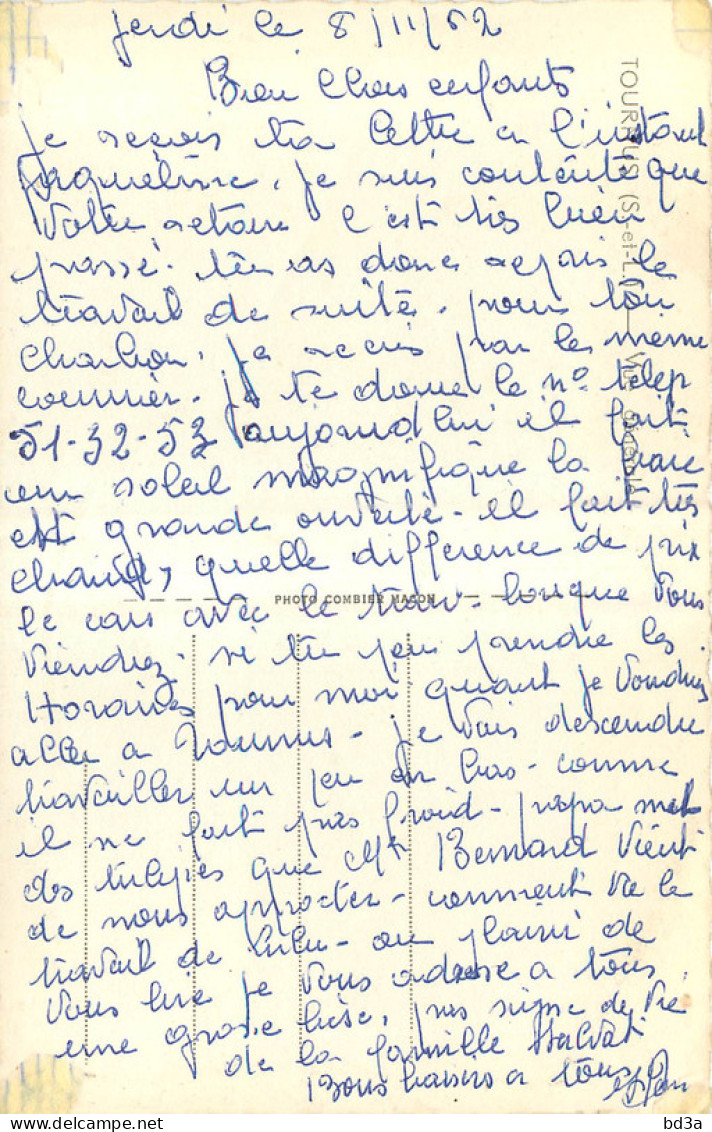 jeudi le 8/11/62
Bien Chers enfants
je reçois ta lettre a l'instant
Jaqueline. je suis contente que
votre retour c'est très bien
passé. tu as donc repris le
travail de suite. pour ton
charbon. je reçois par le même
courrier. je te donne le n° telep
51-32-53 aujourdhui il fait
un soleil magnifique la baie
est grande ouverte. il fait très
chaud, quelle difference de prix
le cars avec le train - lorsque vous
viendrez - si tu peu prendre les
Horaires pour moi quant je voudrai
aller a Tournus - je vais descendre
travailler un peu en bas - comme
il ne fait pas froid - papa met
des tulipes que Mr Bernard vient
de nous apporter - comment va le
travail de Lulu - au plaisir de
vous lire je vous adresse a tous
une grosse bise, pas signe de vie
de la famille
Bons baisers a tous
TOURNUS (S.-et-L.) — Vue générale
PHOTO COMBIER MACON
bd3a